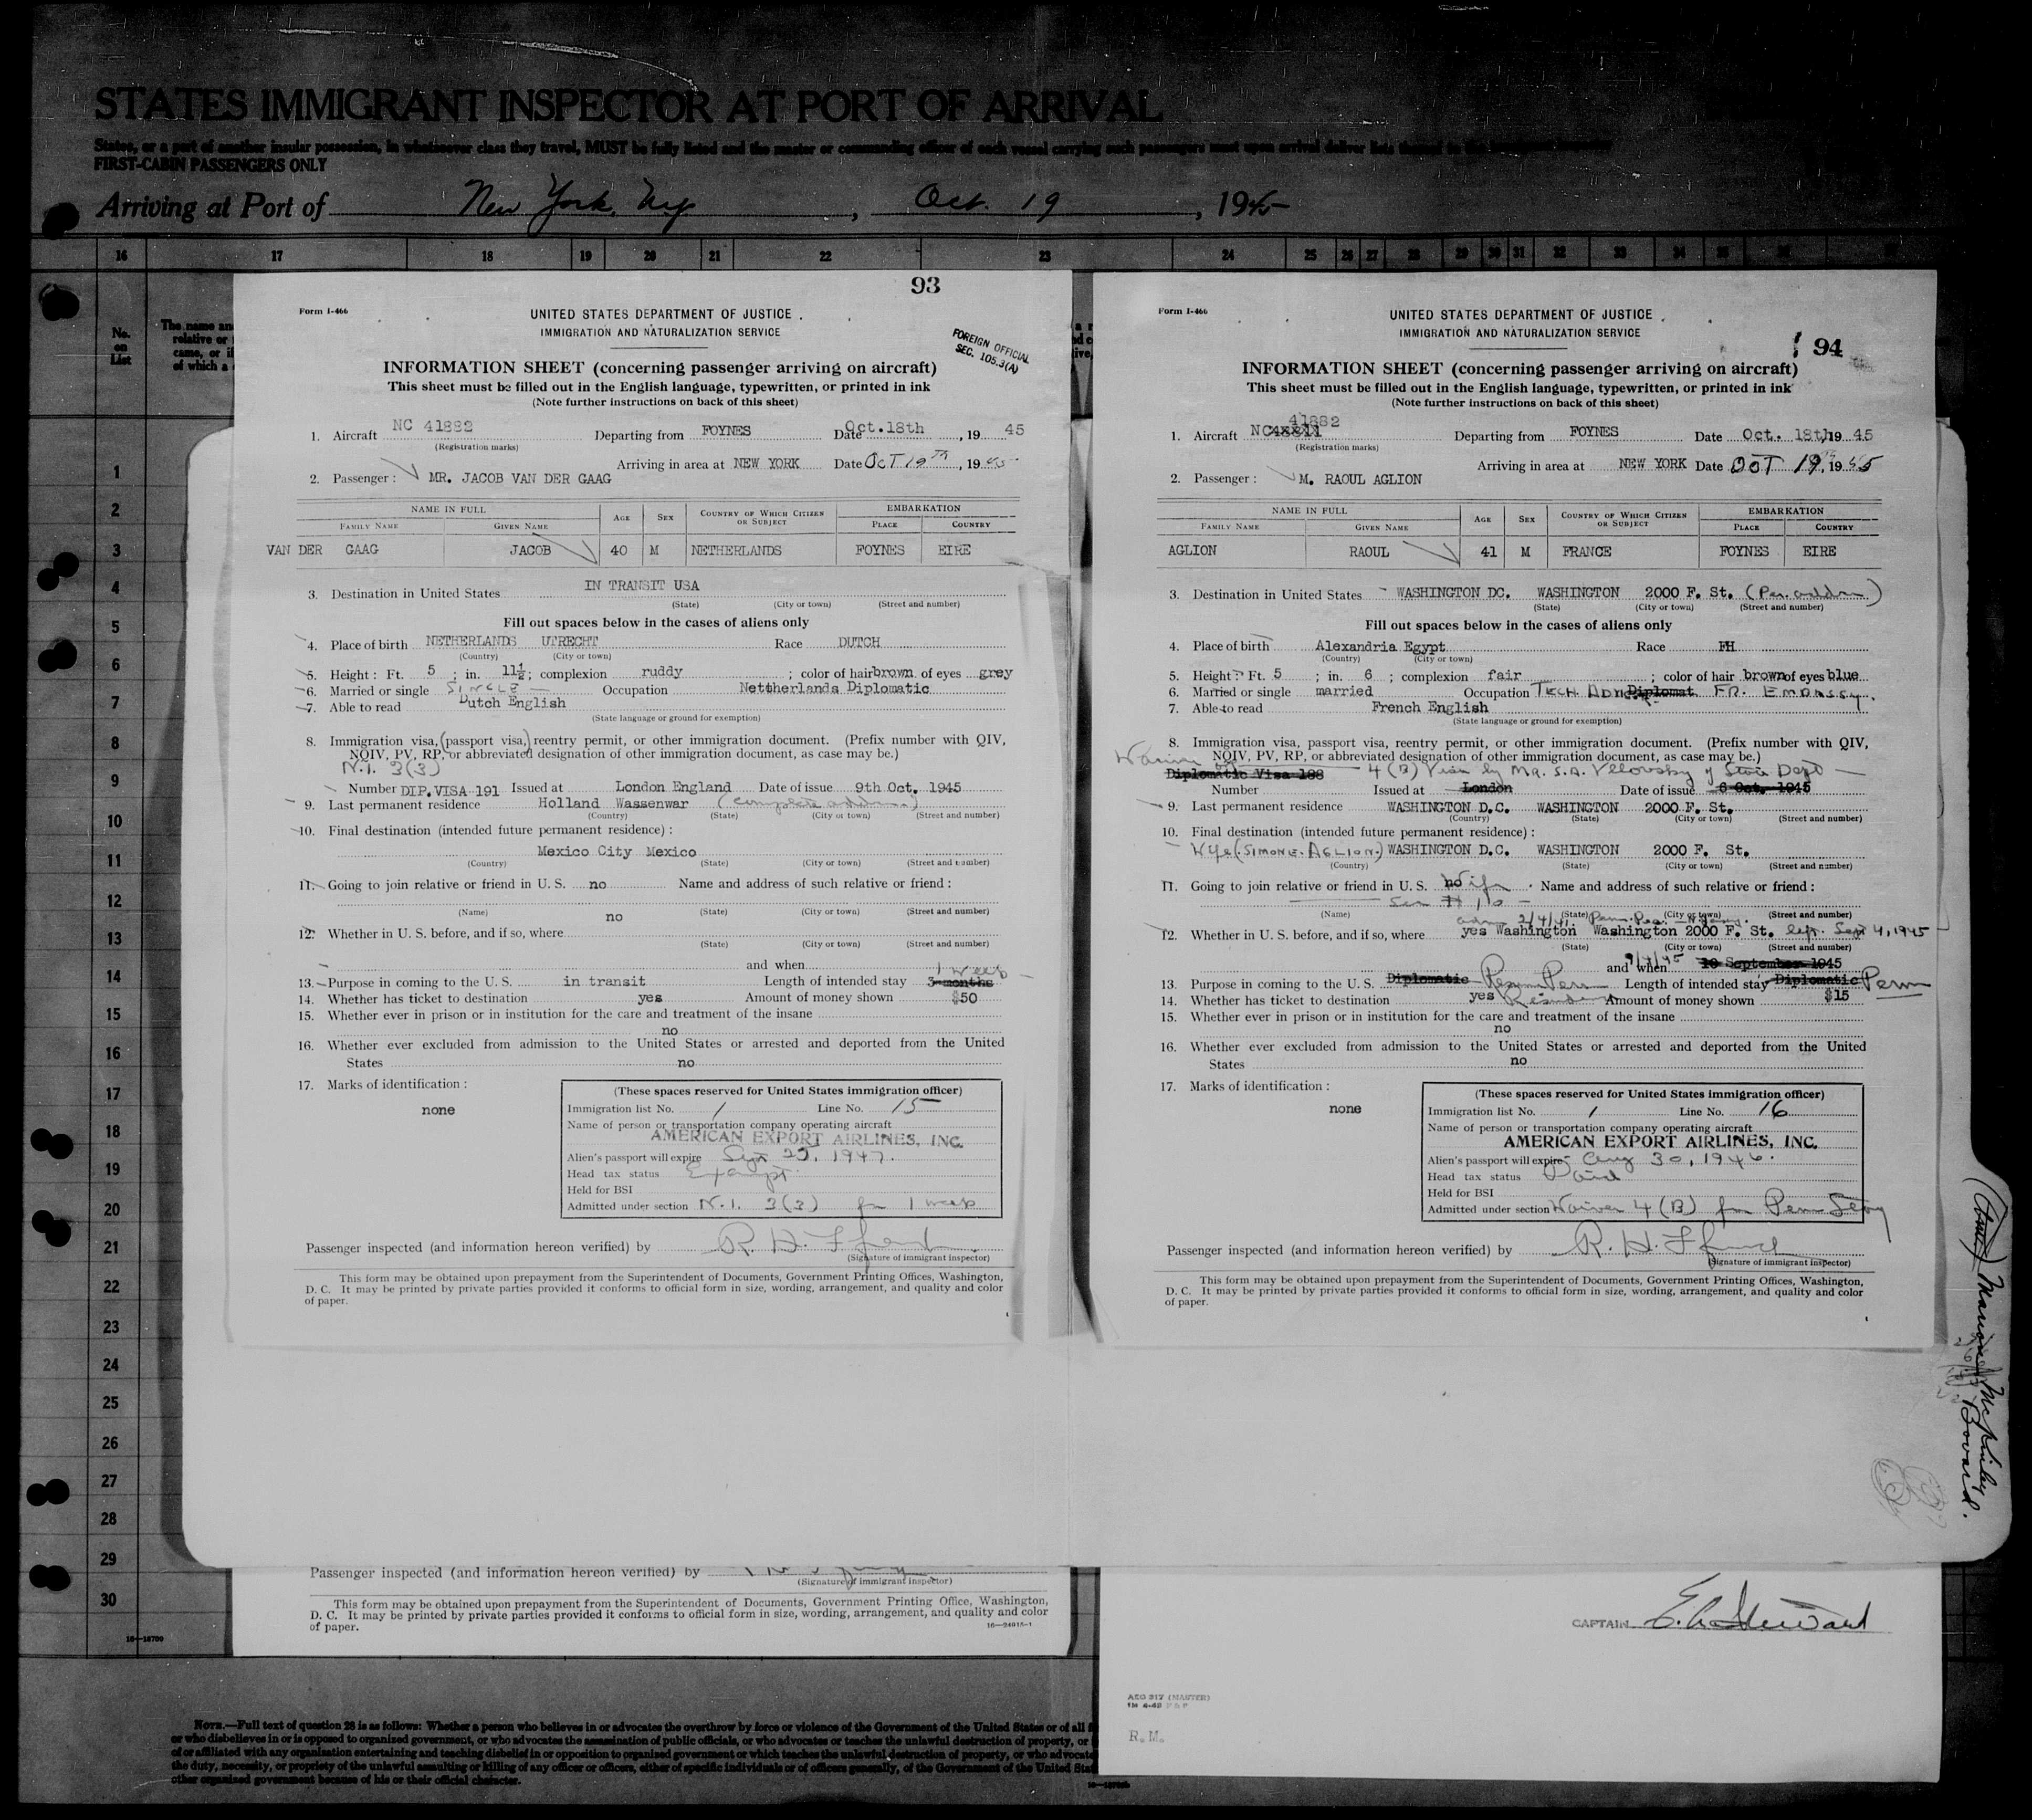 STATES IMMIGRANT INSPECTOR AT PORT OF ARRIVAL
States, or a part of another insular possession, in whatsoever class they travel, MUST be fully listed and the master or commanding officer of each vessel carrying such passengers must upon arrival deliver lists thereof to the immigrant inspector
FIRST-CABIN PASSENGERS ONLY
Arriving at Port of New York, Ny, Oct. 19, 1945
16 17 18 19 20 21 22 23 24 25 26 27 28 29 30 31 32 33 34 35
No. on List
The name an
relative or
came, or if
of which a
1
2
3
4
5
6
7
8
9
10
11
12
13
14
15
16
17
18
19
20
21
22
23
24
25
26
27
28
29
30
93
Form I-466
UNITED STATES DEPARTMENT OF JUSTICE
IMMIGRATION AND NATURALIZATION SERVICE
FOREIGN OFFICIAL
SEC. 105.3(A)
INFORMATION SHEET (concerning passenger arriving on aircraft)
This sheet must be filled out in the English language, typewritten, or printed in ink
(Note further instructions on back of this sheet)
1. Aircraft NC 41882 Departing from FOYNES Date Oct.18th, 1945
(Registration marks)
Arriving in area at NEW YORK Date OCT 19th, 1945
2. Passenger: MR. JACOB VAN DER GAAG
NAME IN FULL AGE SEX COUNTRY OF WHICH CITIZEN OR SUBJECT EMBARKATION
FAMILY NAME GIVEN NAME PLACE COUNTRY
VAN DER GAAG JACOB 40 M NETHERLANDS FOYNES EIRE
3. Destination in United States IN TRANSIT USA
(State) (City or town) (Street and number)
Fill out spaces below in the cases of aliens only
4. Place of birth NETHERLANDS UTRECHT Race DUTCH
(Country) (City or town)
5. Height: Ft. 5; in. 11½; complexion ruddy; color of hair brown of eyes grey
6. Married or single SINGLE Occupation Nettherlands Diplomatic
7. Able to read Dutch English
(State language or ground for exemption)
8. Immigration visa, (passport visa,) reentry permit, or other immigration document. (Prefix number with QIV,
NQIV, PV, RP, or abbreviated designation of other immigration document, as case may be.)
N.I. 3(3)
Number DIP.VISA 191 Issued at London England Date of issue 9th Oct. 1945
9. Last permanent residence Holland Wassenwar (complete address)
(Country) (State) (City or town) (Street and number)
10. Final destination (intended future permanent residence):
Mexico City Mexico
(Country) (State) (City or town) (Street and number)
11. Going to join relative or friend in U. S. no Name and address of such relative or friend:
(Name) (State) (City or town) (Street and number)
no
12. Whether in U. S. before, and if so, where
(State) (City or town) (Street and number)
and when
1 week
13. Purpose in coming to the U. S. in transit Length of intended stay 3 months
14. Whether has ticket to destination yes Amount of money shown $50
15. Whether ever in prison or in institution for the care and treatment of the insane
no
16. Whether ever excluded from admission to the United States or arrested and deported from the United
States no
17. Marks of identification:
none
(These spaces reserved for United States immigration officer)
Immigration list No. 1 Line No. 15
Name of person or transportation company operating aircraft
AMERICAN EXPORT AIRLINES, INC.
Alien's passport will expire Sept 25, 1947.
Head tax status Exempt
Held for BSI
Admitted under section N.I. 3(3) for 1 week
Passenger inspected (and information hereon verified) by R. H.
(Signature of immigrant inspector)
This form may be obtained upon prepayment from the Superintendent of Documents, Government Printing Offices, Washington,
D. C. It may be printed by private parties provided it conforms to official form in size, wording, arrangement, and quality and color
of paper.
94
Form I-466
UNITED STATES DEPARTMENT OF JUSTICE
IMMIGRATION AND NATURALIZATION SERVICE
INFORMATION SHEET (concerning passenger arriving on aircraft)
This sheet must be filled out in the English language, typewritten, or printed in ink
(Note further instructions on back of this sheet)
41882
1. Aircraft NC Departing from FOYNES Date Oct. 18th, 1945
(Registration marks)
Arriving in area at NEW YORK Date OCT 19, 1945
2. Passenger: M. RAOUL AGLION
NAME IN FULL AGE SEX COUNTRY OF WHICH CITIZEN OR SUBJECT EMBARKATION
FAMILY NAME GIVEN NAME PLACE COUNTRY
AGLION RAOUL 41 M FRANCE FOYNES EIRE
3. Destination in United States WASHINGTON DC. WASHINGTON 2000 F. St. (Per. addrss)
(State) (City or town) (Street and number)
Fill out spaces below in the cases of aliens only
4. Place of birth Alexandria Egypt Race FH
(Country) (City or town)
5. Height: Ft. 5; in. 6; complexion fair; color of hair brown of eyes blue
6. Married or single married Occupation TECH ADVISER Diplomat FR. EMBASSY.
7. Able to read French English
(State language or ground for exemption)
8. Immigration visa, passport visa, reentry permit, or other immigration document. (Prefix number with QIV,
NQIV, PV, RP, or abbreviated designation of other immigration document, as case may be.)
Waiver
Diplomatic Visa 188 4(B) Visa by Mr. S.A. of State Dept
Number Issued at London Date of issue 6 Oct. 1945
9. Last permanent residence WASHINGTON D.C. WASHINGTON 2000 F. St.
(Country) (State) (City or town) (Street and number)
10. Final destination (intended future permanent residence):
Wife (SIMONE. AGLION.) WASHINGTON D.C. WASHINGTON 2000 F. St.
(Country) (State) (City or town) (Street and number)
11. Going to join relative or friend in U. S. no Wife Name and address of such relative or friend:
See # 10
(Name) (State) (City or town) (Street and number)
adm 2/4/41 Perm. Res.
12. Whether in U. S. before, and if so, where yes Washington Washington 2000 F. St. left Sept 4, 1945
(State) (City or town) (Street and number)
9/4/45 and when 10 September 1945
13. Purpose in coming to the U. S. Diplomatic Resume Perm Length of intended stay Diplomatic Perm
14. Whether has ticket to destination yes Residence Amount of money shown $15
15. Whether ever in prison or in institution for the care and treatment of the insane
no
16. Whether ever excluded from admission to the United States or arrested and deported from the United
States no
17. Marks of identification:
none
(These spaces reserved for United States immigration officer)
Immigration list No. 1 Line No. 16
Name of person or transportation company operating aircraft
AMERICAN EXPORT AIRLINES, INC.
Alien's passport will expire Aug 30, 1946.
Head tax status Paid
Held for BSI
Admitted under section Waiver 4(B) for Perm Stay
Passenger inspected (and information hereon verified) by R. H.
(Signature of immigrant inspector)
This form may be obtained upon prepayment from the Superintendent of Documents, Government Printing Offices, Washington,
D. C. It may be printed by private parties provided it conforms to official form in size, wording, arrangement, and quality and color
of paper.
Bovard.
Passenger inspected (and information hereon verified) by
(Signature of immigrant inspector)
This form may be obtained upon prepayment from the Superintendent of Documents, Government Printing Office, Washington,
D. C. It may be printed by private parties provided it conforms to official form in size, wording, arrangement, and quality and color
of paper.
16—24615-1
16—18700
CAPTAIN E. A. Steward
AEG 317 (MASTER)
R.M.
NOTE.—Full text of question 28 is as follows: Whether a person who believes in or advocates the overthrow by force or violence of the Government of the United States or of all
or who disbelieves in or is opposed to organized government, or who advocates the assassination of public officials, or who advocates or teaches the unlawful destruction of property, or
of or affiliated with any organization entertaining and teaching disbelief in or opposition to organized government or which teaches the unlawful destruction of property, or who advocate
the duty, necessity, or propriety of the unlawful assaulting or killing of any officer or officers, either of specific individuals or of officers generally, of the Government of the United Stat
other organized government because of his or their official character.